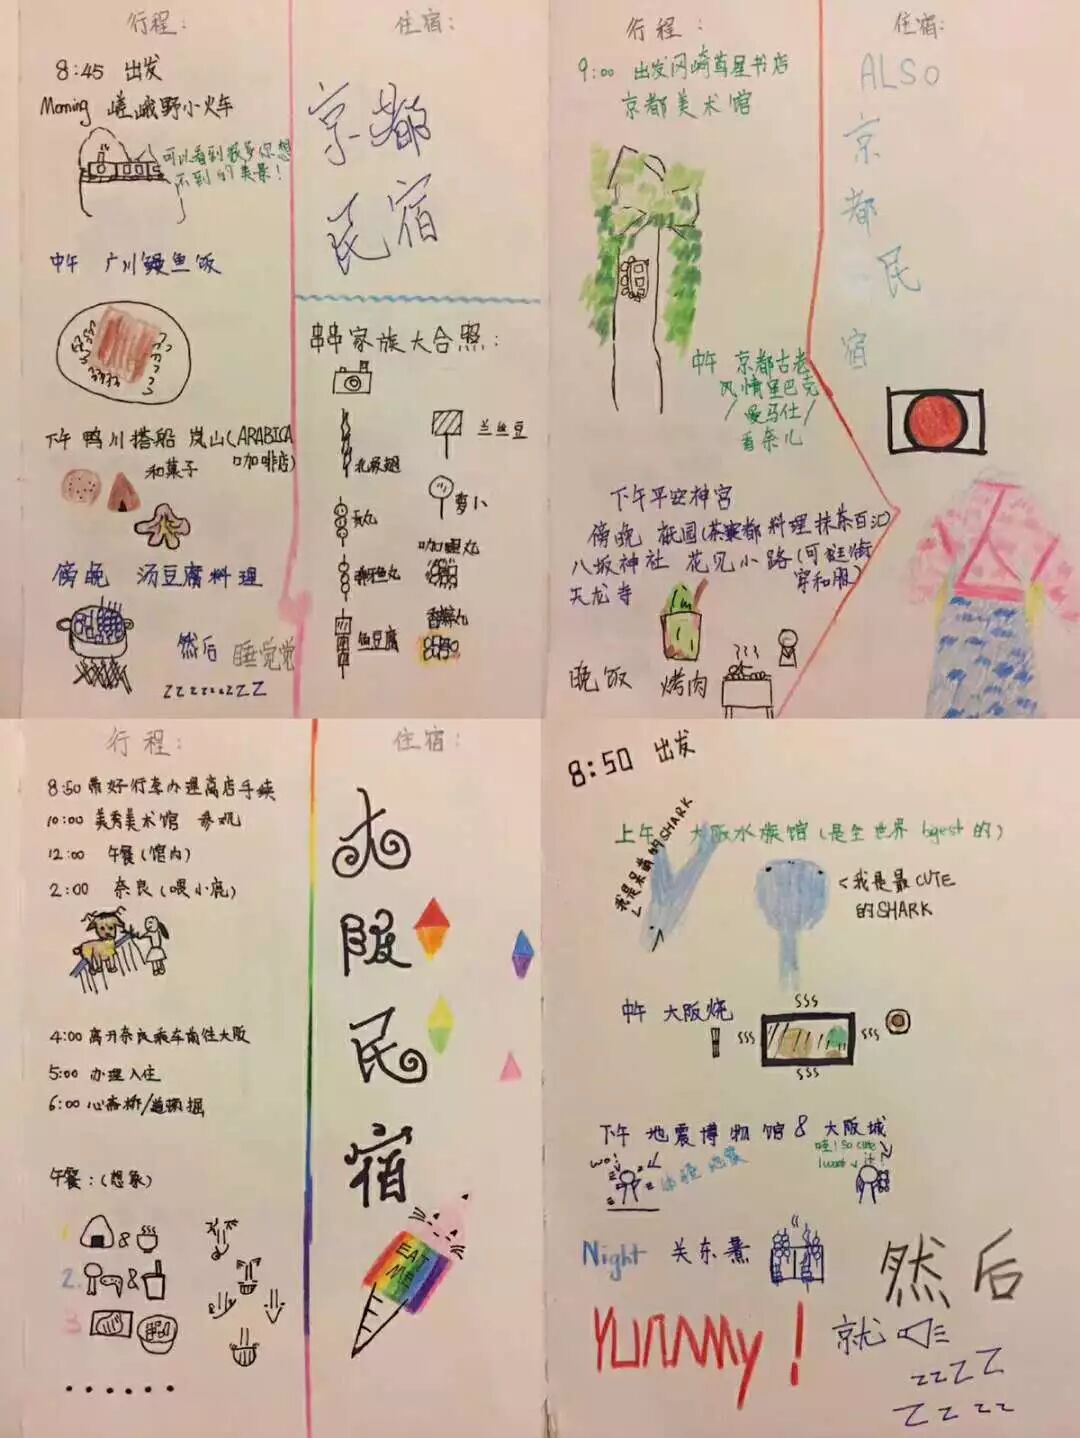 行程:
8:45 出发
Morning 嵯峨野小火车
可以看到很多你想
不到的美景!
中午 广川鳗鱼饭
下午 鸭川搭船 岚山(ARABICA
咖啡店)
和菓子
傍晚 汤豆腐料理
然后 睡觉觉
zzzzzzzz
住宿:
京都
民宿
串串家族大合照:
兰丝豆
北极翅
萝卜
贡丸
咖喱丸
鱼丸
香菇丸
鱼豆腐
行程:
9:00 出发冈崎茑屋书店
京都美术馆
中午 京都古老
风情星巴克
/爱马仕/
看朵儿
下午平安神宫
傍晚 祇园(茶寮都料理抹茶百汇)
八坂神社 花见小路(可逛街
穿和服)
天龙寺
晚饭 烤肉
住宿:
ALSO
京
都
民
宿
行程:
8:50 带好行李办理离店手续
10:00 美秀美术馆 参观
12:00 午餐(馆内)
2:00 奈良(喂小鹿)
4:00 离开奈良乘车前往大阪
5:00 办理入住
6:00 心斋桥/道顿掘
午餐:(想象)
1
&
2.
&
3
......
住宿:
大
阪
民
宿
EAT
ME
8:50 出发
上午 大阪水族馆(是全世界 bgest 的)
我是呆萌的SHARK
<我是最CUTE
的SHARK
中午 大阪烧
sss
sss
sss
sss
下午 地震博物馆 & 大阪城
wo!
哇!So cute
I want
体验地震
Night 关东煮
Yummy!
然后
就
zzzz
zzzz